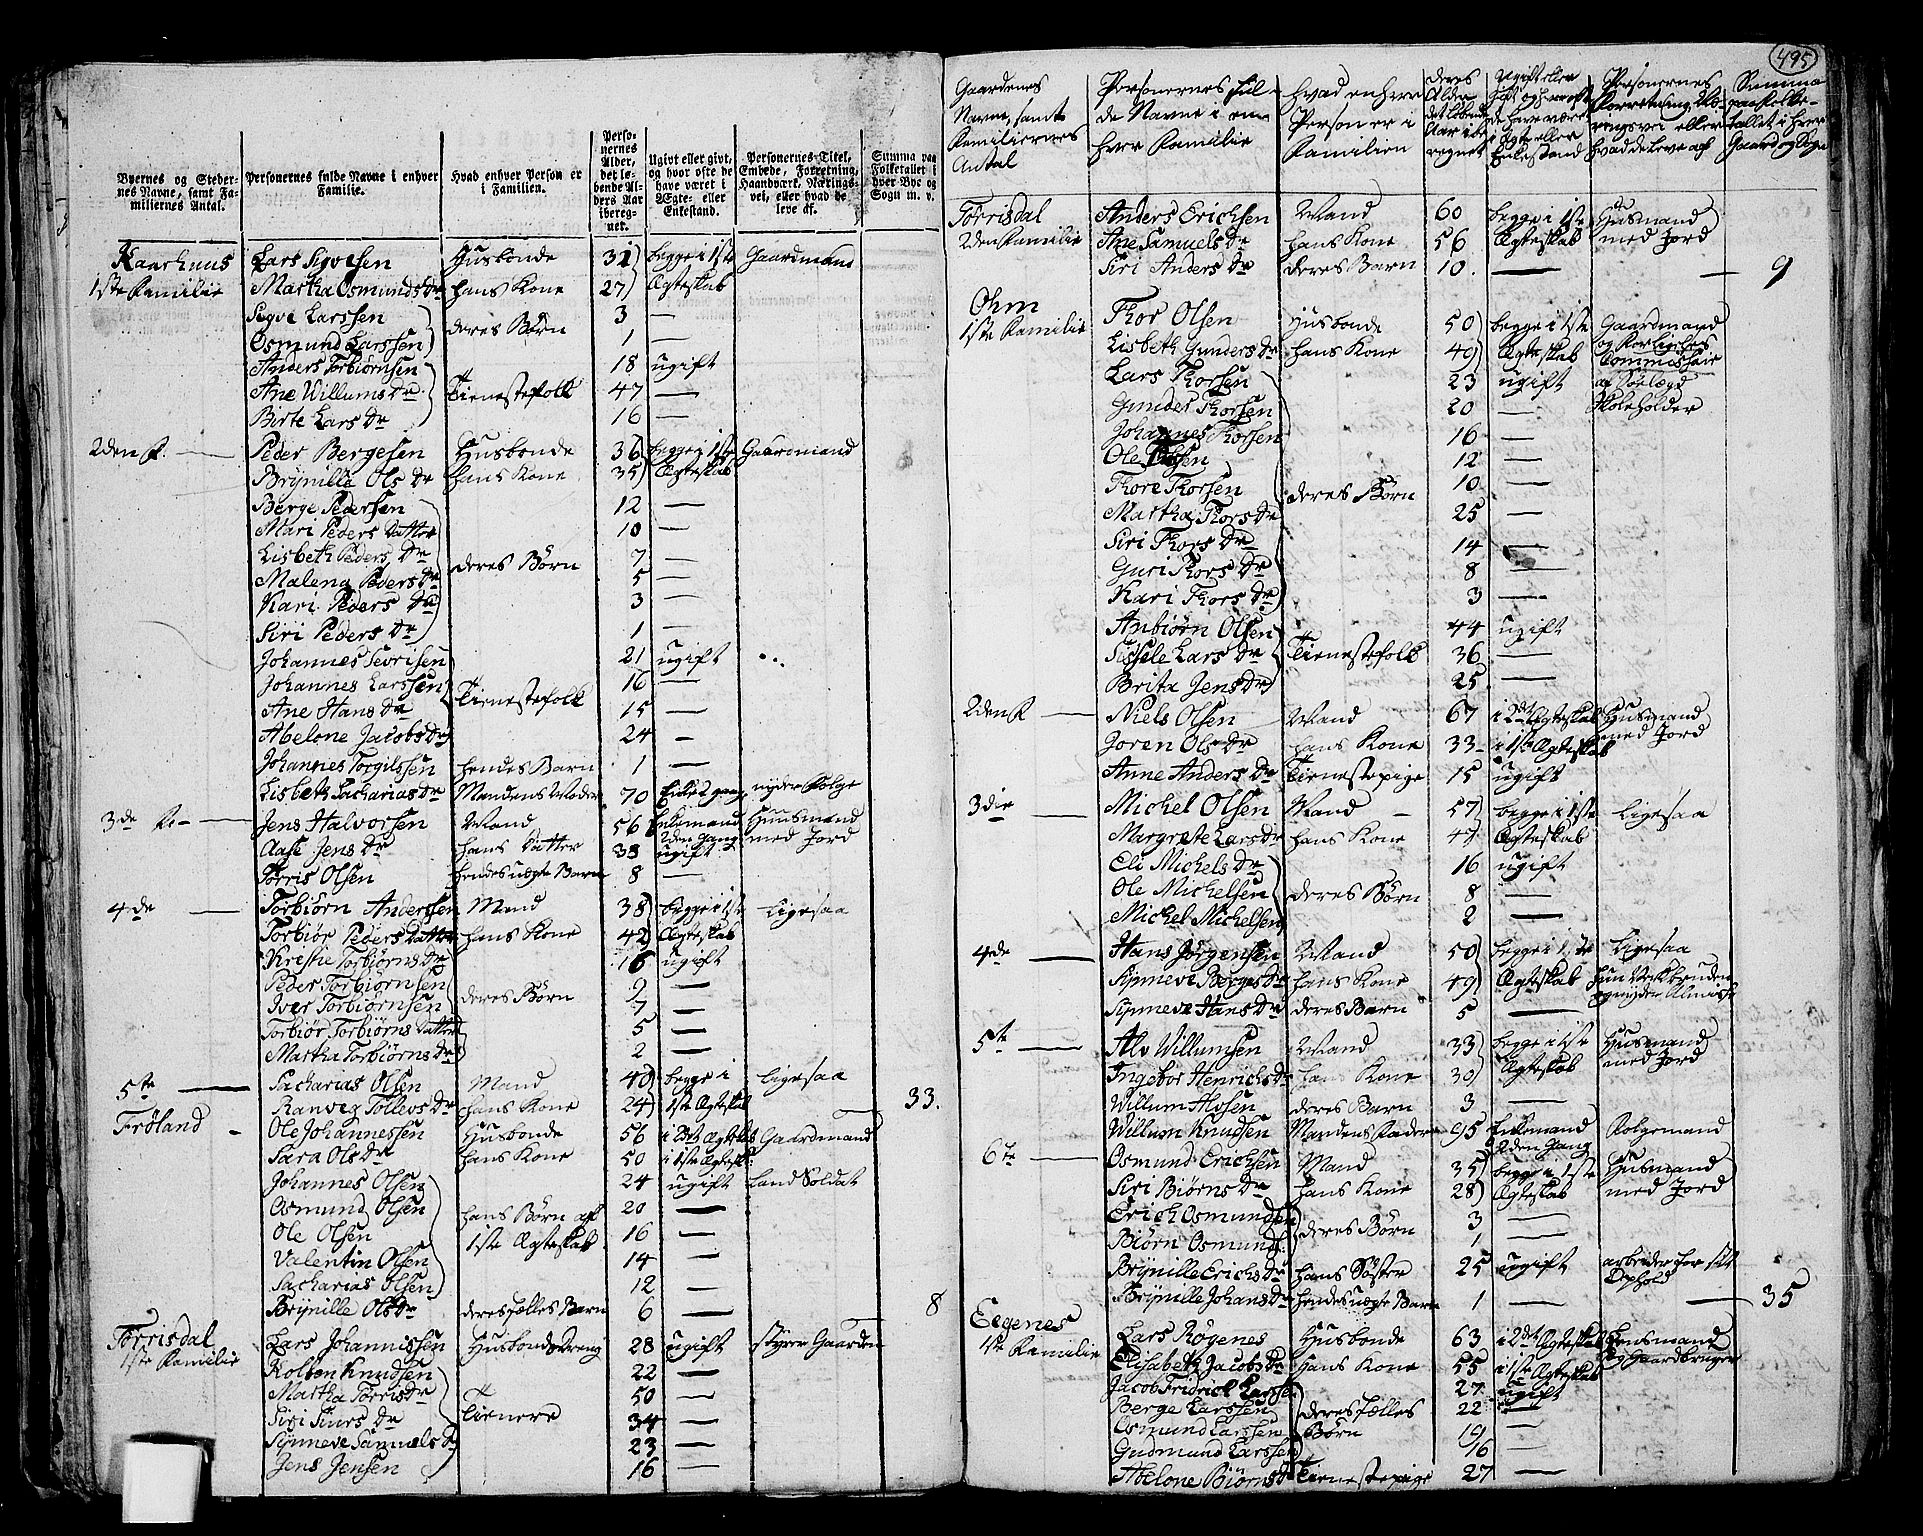 Byernes og Steder-
nes Navne, samt Fa-
miliernes Antal.
Personernes fulde Navne i enhver
Familie.
Hvad enhver Person er
i Familien.
Perso-
nernes
Alder,
det lø-
bende Al-
ders Aar
ibereg-
net.
Ugivt eller givt,
og hvor ofte de
have været i
Ægte- eller
Enkestand.
Personernes Titel,
Embede, Forretning,
Haandværk, Nærings-
vei, eller hvad de
leve af.
Summa paa
Folketallet i
hver Bye og
Sogn m. v.
Kaarhuus Lars Sigvesen Husbonde 31 begge i 1ste Gaardmand
1ste Familie Martha Osmunds Dr hans Kone 27 Ægteskab
Sigve Larssen 3 —
deres Børn
Osmund Larssen 1 —
Anders Torbiørnsen 18 ugift
Ane Willums Dr Tienestefolk 47 —
Birte Lars Dr 16 —
2den F. — Peder Bergesen Husbonde 36 begge i 1ste Gaardmand
Brynille Ols Dr hans Kone 35 Ægteskab
Berge Pedersen 12 —
Mari Peders Datter 10 —
Lisbeth Peders Dr 7 —
deres Børn
Malena Peders Dr 5 —
Kari Peders Dr 3 —
Siri Peders Dr 1 —
Johannes Sevrisen 21 ugift
Johannes Larssen 16 —
Tienestefolk
Ane Hans Dr 15 —
Abelone Jacobs Dr 24 —
Johannes Torgilssen hendes Barn 1 —
Lisbeth Sacharias Dr Mandens Moder 70 Enke 1 gang nyder Folge
3de F. — Jens Halvorsen Mand 56 Enkemand Huusmand
2den Gang med Jord
Aase Jens Dr hans Datter 33 ugift
Tørris Olsen hendes uægte Barn 8 —
4de — Torbiørn Anderssen Mand 38 begge i 1ste Ligesaa
Torbiør Peders Datter hans Kone 42 Ægteskab
Kristie Torbiørns Dr 16 ugift
Peder Torbiørnsen 9 —
deres Børn
Iver Torbiørnsen 7 —
Torbiør Torbiørns Datter 5 —
Martha Torbiørns Dr 2 —
5te — Sacharias Olsen Mand 40 begge i Ligesaa
Ranveg Tollevs Dr hans Kone 24 1ste Ægteskab 33.
Frøland - Ole Johannessen Husbonde 56 i 2det Ægteskab Gaardmand
Sara Ols Dr hans Kone 50 i 1ste Ægtesk:
Johannes Olsen 24 ugift Land Soldat
Osmund Olsen 20 —
hans Børn af
Ole Olsen 16 —
1ste Ægteskab
Valentin Olsen 14 —
Sacharias Olsen 12 —
Brynille Ols Dr deres fælles Barn 6 — 8
Tørrisdal Lars Johannissen Husbonds Dreng 28 ugift styrer Gaarden
1ste Familie
Kolben Knudsen 22 —
Martha Tørris Dr 50 —
Tienere
Siri Siurs Dr 34 —
Synneve Samuels Dr 23 —
Jens Jensen 16 —
495
Gaardenes
Navne, samt
Familiernes
Antal
Personernes ful-
de Navne i en-
hver Familie
hvad enhver
Person er i
Familien
deres
Alder
det løbende
Aar ibe-
regnet
Ugift eller
gift og hvor oft
de have været
i Ægte eller
Enkestand
Personernes
Forretning, Næ-
ringsvei eller
hvad de leve af
Summa
paa Folke-
tallet i hver
Gaard og Sogn
Tørrisdal Anders Erichsen Mand 60 begge i 1ste Husmand
2den Familie Ane Samuels Dr hans Kone 56 Ægteskab med Jord
Siri Anders Dr deres Barn 10. — — 9
Ohm
1ste Familie Thor Olsen Husbonde 50 begge i 1ste Gaardmand
Lisbeth Gunders Dr hans Kone 49 Ægteskab og Forligelses
Commissair
Lars Thorsen 23 ugift
Gunder Thorsen 20 — Skoleholder
Johannes Thorsen 16 —
Ole Thorsen 12 —
Thore Thorsen 10 —
deres Børn
Martha Thors Dr 25 —
Siri Thors Dr 14 —
Guri Thors Dr 8 —
Kari Thors Dr 3 —
Anbiørn Olsen 44 ugift
Sissele Lars Dr Tienestefolk 36 —
Brita Jens Dr 25 —
2den F — Niels Olsen Mand 67 i 2det Ægteskab Husmand
Joren Ols Dr hans Kone 33 i 1ste Ægteskab med Jord
Anne Anders Dr Tienestepige 15 ugift
3die — Michel Olsen Mand 57 begge i 1ste Ligesaa
Margrete Lars Dr hans Kone 47 Ægteskab
Eli Michels Dr 16 ugift
Ole Michelsen deres Børn 8 —
Michel Michelsen 2 —
4de — Hans Jørgensen Mand 50 begge i 1ste Ligesaa
Synneve Berges Dr hans Kone 49 Ægteskab
Synneve Hans Dr deres Barn 5 —
5te — Alv Willumsen Mand 33 begge i 1ste Husmand
Ingebor Henrichs Dr hans Kone 30 Ægteskab med Jord
Willum Alvsen deres Barn 3 —
Willum Knudsen Mandens Fader 95 Enkemand Folgemand
2den Gang
6te — Osmund Erichsen Mand 35 begge i 1ste Husmand
Siri Biørns Dr hans Kone 28 Ægteskab med Jord
Erich Osmundsen 3 —
deres Børn
Biørn Osmunds: 1 —
Brynille Erichs Dr hans Søster 25 ugift arbeider for sit
Ophold
Brynille Johans Dr hendes uægte Barn 1 — — 35
Eegenes
1ste Familie Lars Røgenes Husbonde 63 i 2det Ægteskab Lensmand
Elisabeth Jacobs Dr hans Kone 55 i 1ste Ægteskab og Gaardbruger
Jacob Fridrich Larssen 27 ugift
Berge Larssen deres fælles 22 —
Osmund Larssen Børn 19 —
Gudmund Larssen 16 —
Abelone Biørns Dr Tienestepige 27 —